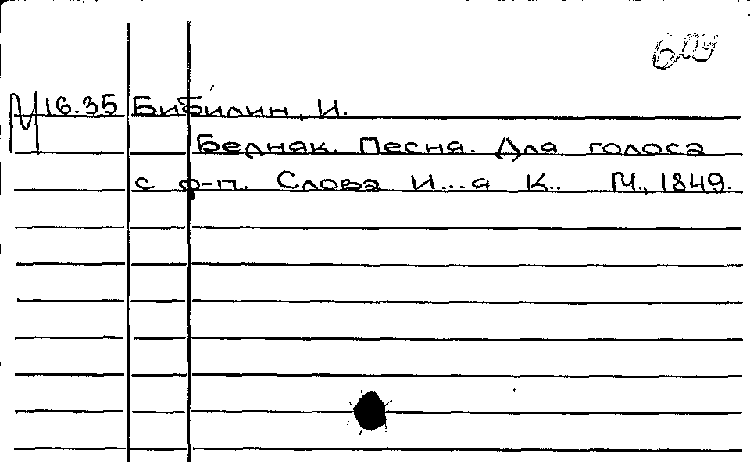 М16.35 Бибилин, И.
Бедняк. Песня. Для голоса
с ф-п. Слова И...а К. М., 1849.